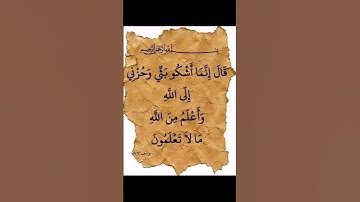 بسم الله الرحمن الرحيم
قَالَ إِنَّمَا أَشْكُو بَثِّي وَحُزْنِي
إِلَى اللَّهِ
وَأَعْلَمُ مِنَ اللَّهِ
مَا لاَ تَعْلَمُونَ